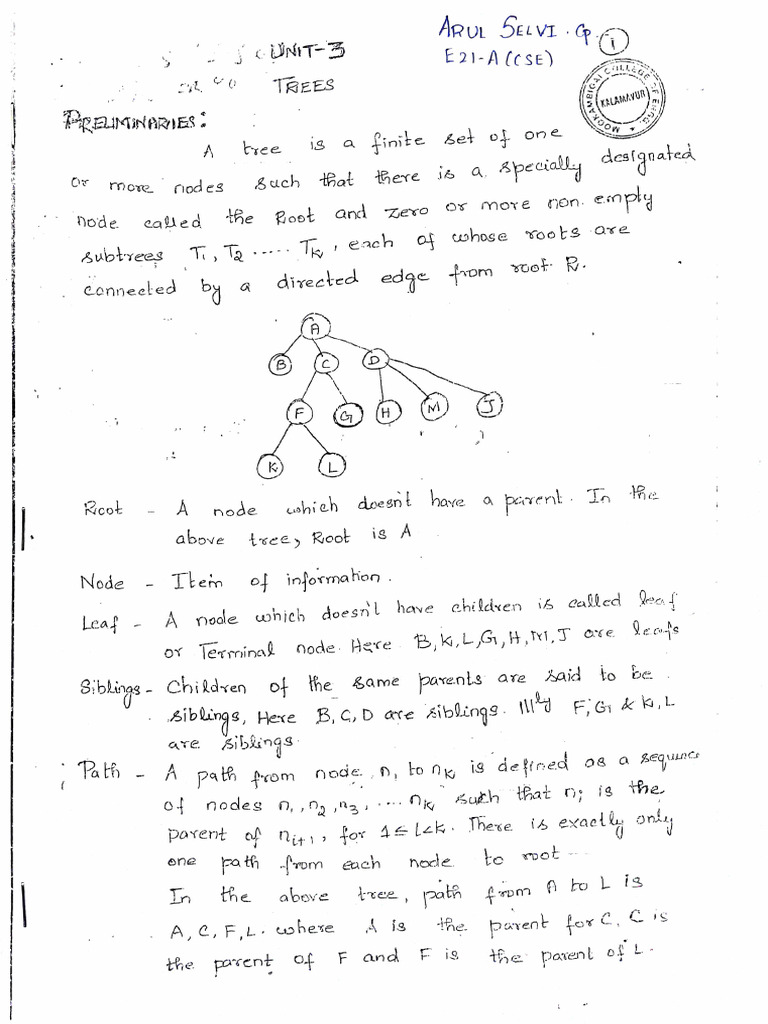 UNIT-3
ARUL SELVI . G
1
E21-A (CSE)
TREES
MOOKAMBIGAI COLLEGE OF ENGG.
KALAMAVUR
PRELIMINARIES:
A tree is a finite set of one
or more nodes such that there is a specially designated
node called the Root and zero or more non empty
subtrees T1, T2 ..... Tk, each of whose roots are
connected by a directed edge from root R.
A
B C D
F G H M J
K L
Root - A node which doesn't have a parent. In the
above tree, Root is A
Node - Item of information.
Leaf - A node which doesn't have children is called leaf
or Terminal node. Here B, K, L, G, H, M, J are leafs
Siblings - Children of the same parents are said to be
siblings, Here B, C, D are siblings. Illly F, G & K, L
are siblings.
Path - A path from node n1 to nk is defined as a sequence
of nodes n1, n2, n3, .... nk such that ni is the
parent of ni+1, for 1≤ i<k. There is exactly only
one path from each node to root
In the above tree, path from A to L is
A, C, F, L. where A is the parent for C, C is
the parent of F and F is the parent of L.